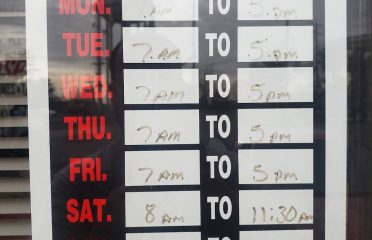 MON. 7 AM TO 5 pm
TUE. 7 AM TO 5 pm
WED. 7 AM TO 5 pm
THU. 7 AM TO 5 pm
FRI. 7 AM TO 5 pm
SAT. 8 AM TO 11:30 AM
TO